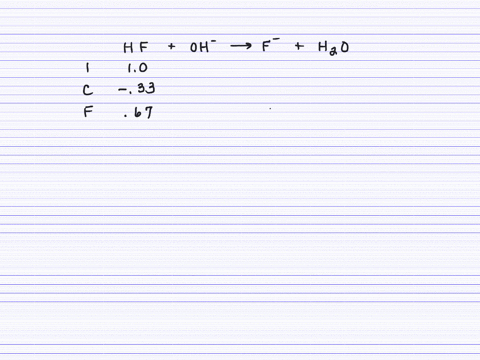 HF + OH⁻ → F⁻ + H₂O
I 1.0
C -.33
F .67